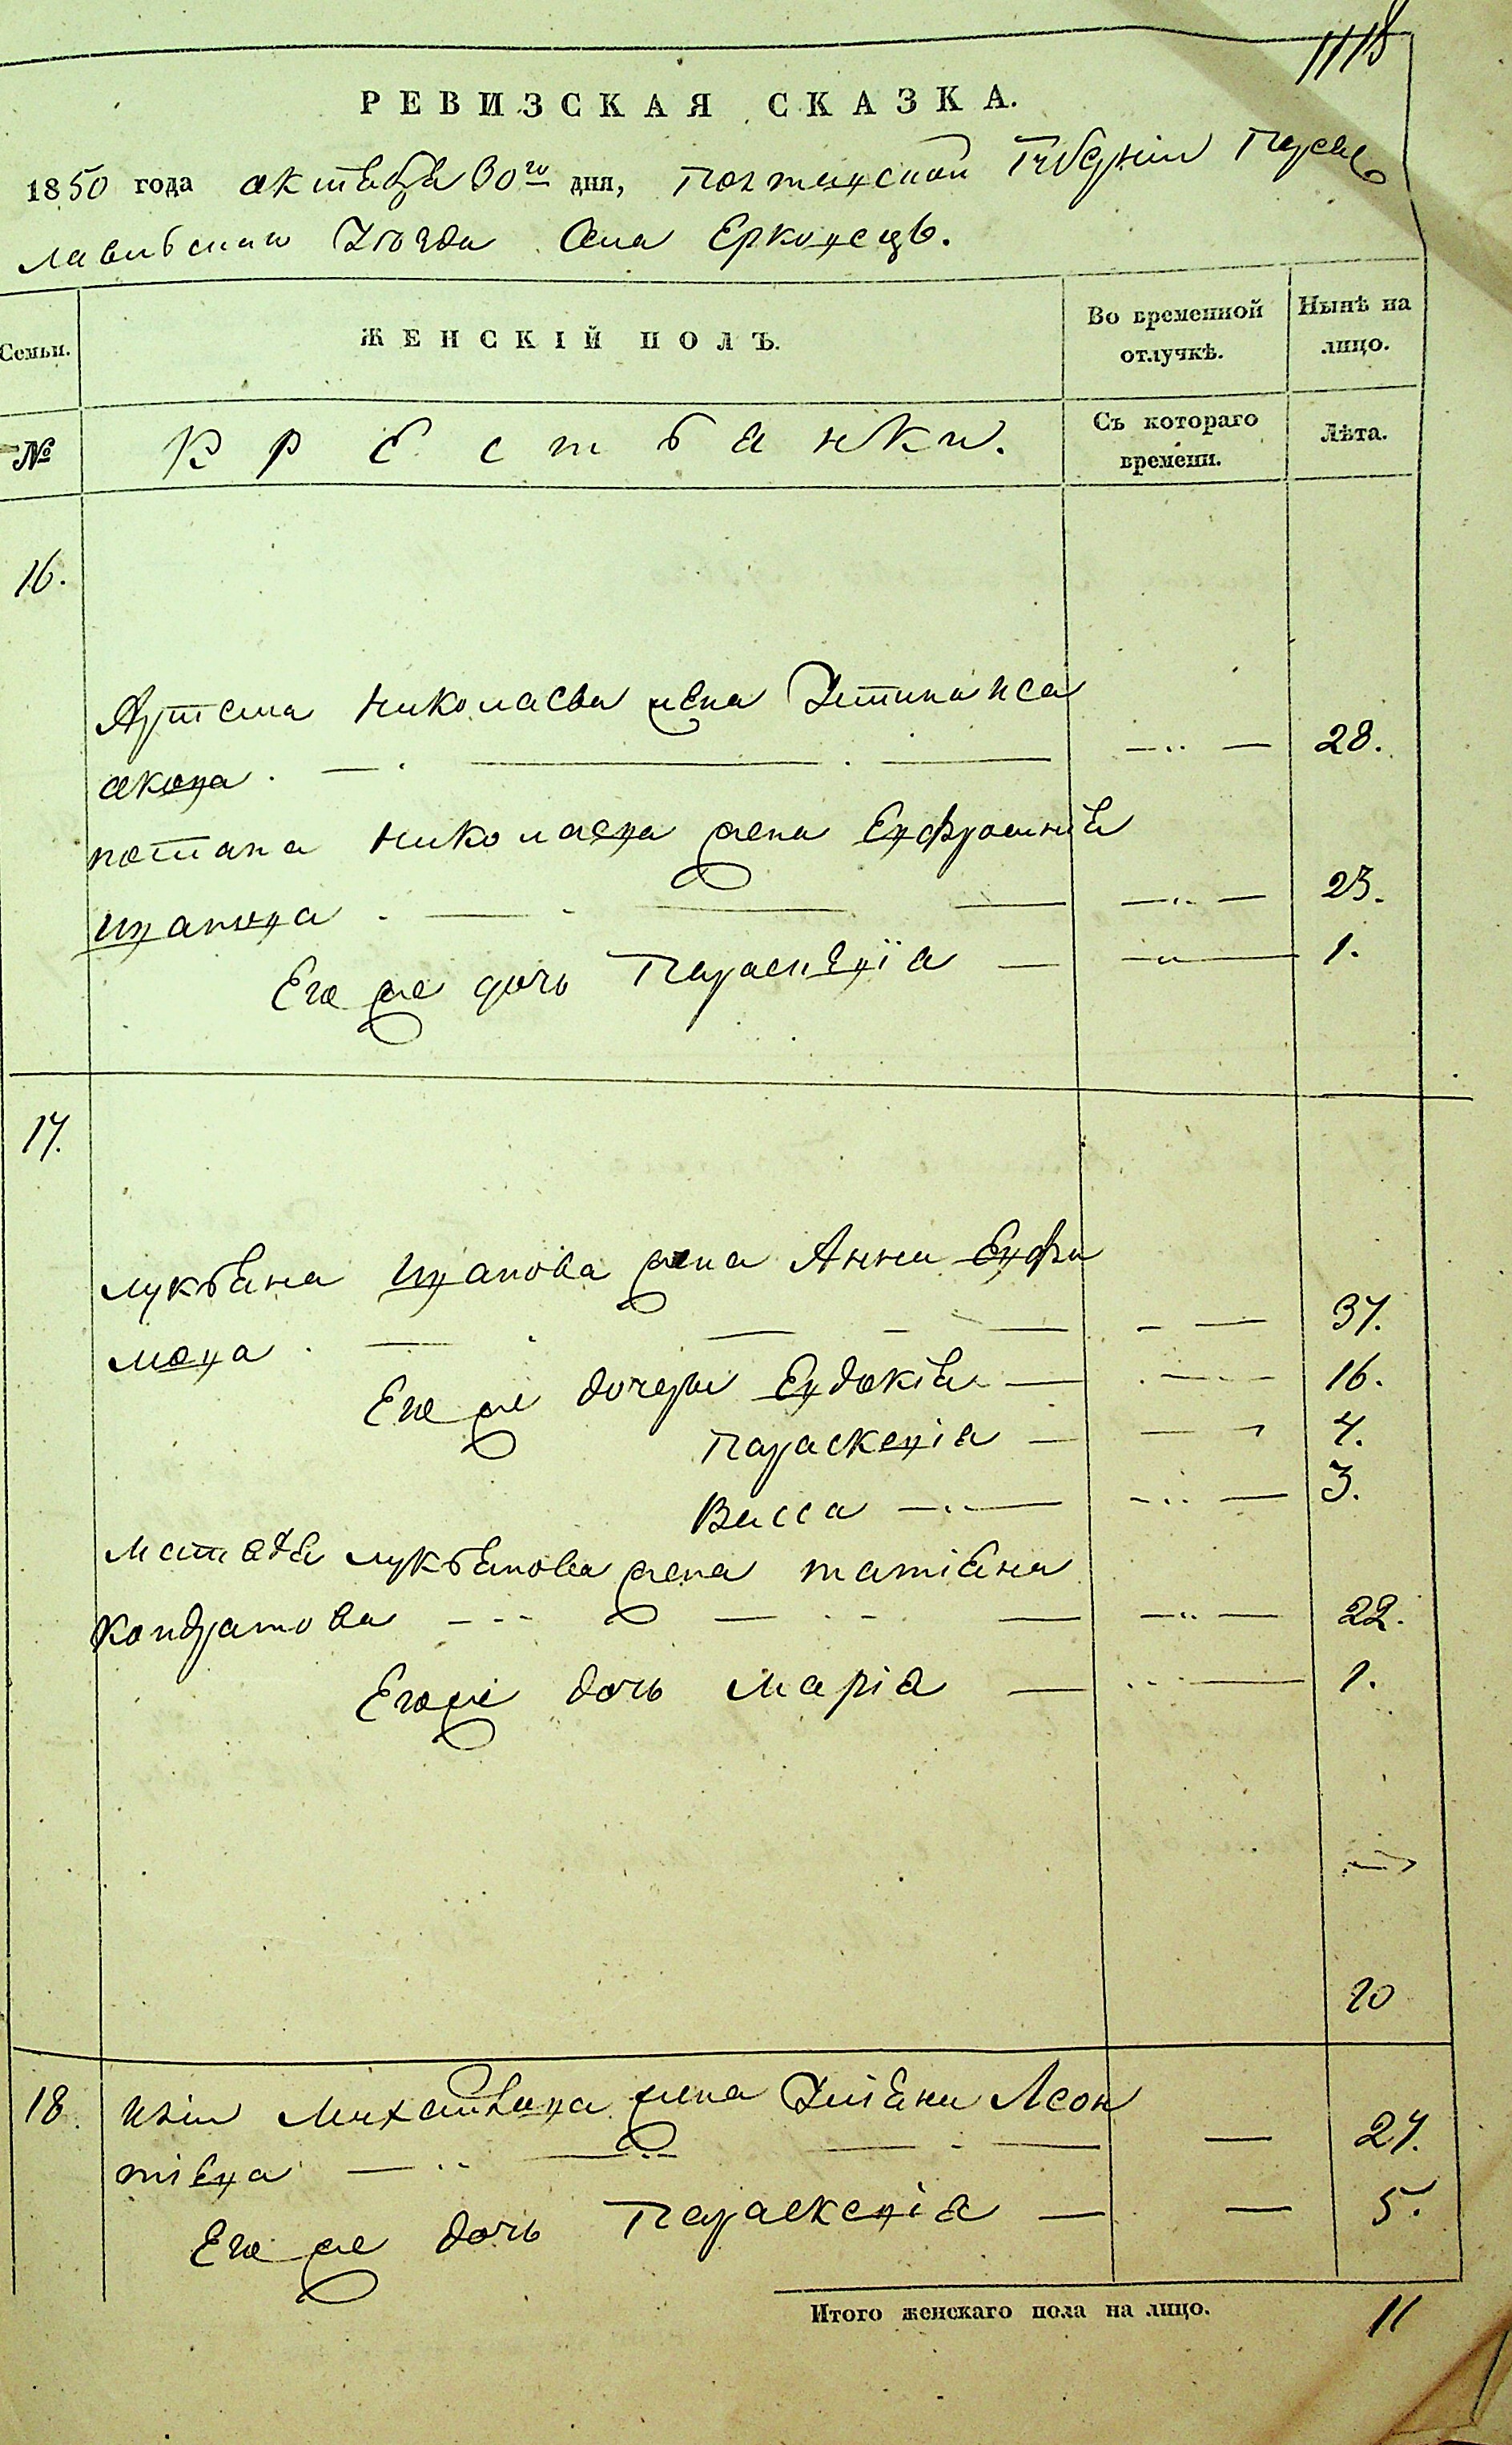 1118
РЕВИЗСКАЯ СКАЗКА.
1850 года октября 30го дня, Полтавской Губерніи Переяс
лавльскаго Уѣзда Села Ерковецъ.
Семьи.
ЖЕНСКІЙ ПОЛЪ.
Во временной отлучкѣ.
Нынѣ на лицо.
№
Крестьянки.
Съ котораго времени.
Лѣта.
16.
Артема Николаева жена Устинья
28.
Потапа Николаева жена Евфросинія
Иванова 23.
Его же дочь Параскевія 1.
17.
Лукьяна Иванова жена Анна Ефи
мова 37.
Его же дочери Евдокія 16.
Параскевія 7.
Васса 3.
Лукьянова жена Татіяна
Кондратова 22.
Его же дочь Марія 1.
10
18. Михайлова жена Уліяна Леон
тіева 27.
Его же дочь Параскевія 5.
Итого женскаго пола на лицо. 11